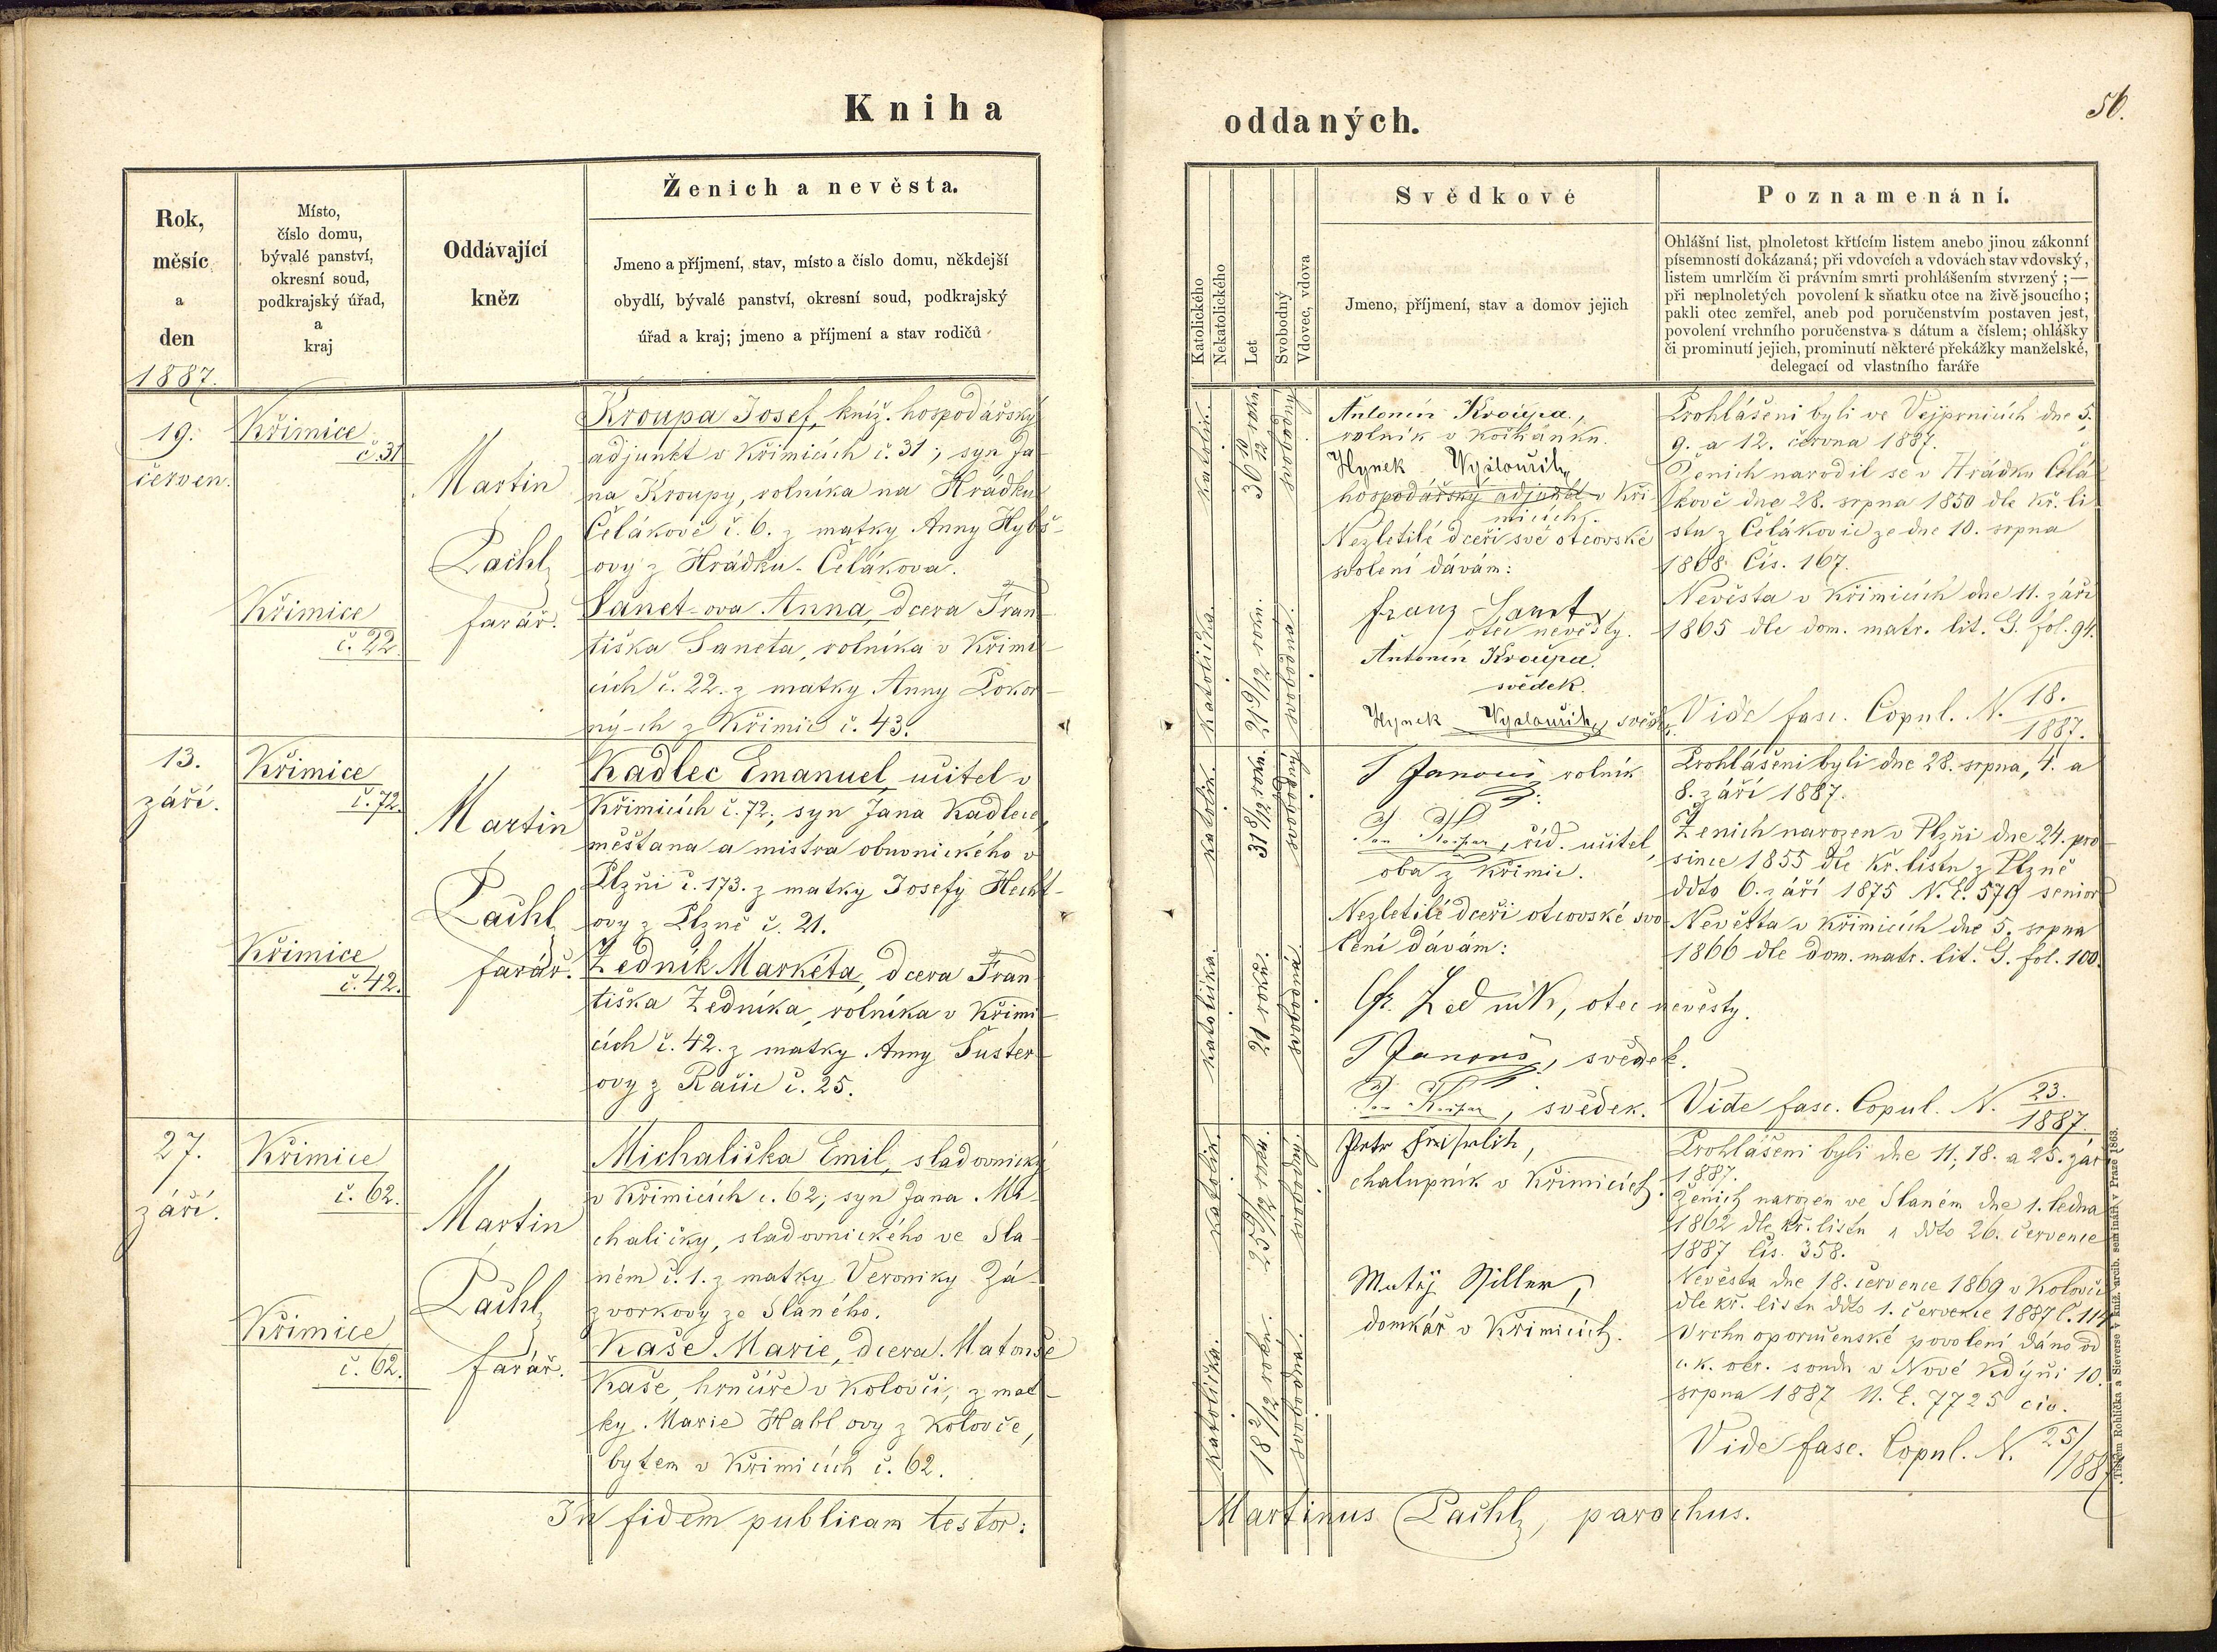 Kniha
oddaných.
56.
Rok,
měsíc
a
den
1887.
Místo,
číslo domu,
bývalé panství,
okresní soud,
podkrajský úřad,
a
kraj
Oddávající
kněz
Ženich a nevěsta.
Jmeno a příjmení, stav, místo a číslo domu, někdejší
obydlí, bývalé panství, okresní soud, podkrajský
úřad a kraj; jmeno a příjmení a stav rodičů
Katolického
Nekatolického
Let
Svobodný
Vdovec, vdova
Svědkové
Jmeno, příjmení, stav a domov jejich
Poznamenání.
Ohlášní list, plnoletost křtícím listem anebo jinou zákonní
písemností dokázaná; při vdovcích a vdovách stav vdovský,
listem umrlčím či právním smrti prohlášením stvrzený ;—
při neplnoletých povolení k sňatku otce na živě jsoucího;
pakli otec zemřel, aneb pod poručenstvím postaven jest,
povolení vrchního poručenstva s dátum a číslem; ohlášky
či prominutí jejich, prominutí některé překážky manželské,
delegací od vlastního faráře
19.
červen.
Křimice
č. 31
Křimice
č. 22.
Martin
Pachl,
farář.
Kroupa Josef, kníž. hospodářský
adjunkt v Křimicích č. 31; syn Ja-
na Kroupy, rolníka na Hrádku
Čelákově č. 6. z matky Anny Hybš-
ovy z Hrádku-Čelákova.
Sanet-ova Anna, dcera Fran-
tiška Saneta, rolníka v Křimi-
cích č. 22. z matky Anny Pokor-
ný-ch z Křimic č. 43.
katolík.
36 10/12 roku
svobodný
katolička.
21 9/12 roku.
svobodná.
Antonín Kroupa,
rolník v
Hynek
hospodářský adjunkt v Kři-
micích.
Nezletilé dceři své otcovské
svolení dávám:
Franz Sanet,
otec nevěsty.
Antonín Kroupa.
svědek.
Hynek svěd.
Prohlášeni byli ve Vejprnicích dne 5.,
9. a 12. června 1887.
Ženich narodil se v Hrádku Čelá-
kově dne 28. srpna 1850 dle kř. li-
stu z Čelákovic ze dne 10. srpna
1868 Čís. 167.
Nevěsta v Křimicích dne 11. září
1865 dle dom. matr. lit. G. fol. 94.
Vide fasc. Copul. N. 18./1887.
13.
září.
Křimice
č. 72.
Křimice
č. 42.
Martin
Pachl,
farář.
Kadlec Emanuel, učitel v
Křimicích č. 72; syn Jana Kadlece,
měšťana a mistra obuvnického v
Plzni č. 173. z matky Josefy Hecht-
ovy z Plzně č. 21.
Zedník Markéta, dcera Fran-
tiška Zedníka, rolníka v Křimi-
cích č. 42. z matky Anny Šuster-
ovy z č. 25.
katolík.
31 8/12 roku.
svobodný
katolička.
21 roků.
svobodná.
J Janouš, rolník
říd. učitel,
oba z Křimic.
Nezletilé dceři otcovské svo-
lení dávám:
Fr. Zedník, otec nevěsty.
J Janouš, svědek.
svědek.
Prohlášeni byli dne 28. srpna, 4. a
8. září 1887.
Ženich narozen v Plzni dne 24. pro-
since 1855 dle kř. listu z Plzně
ddto 6. září 1875 N. E. 579 senior
Nevěsta v Křimicích dne 5. srpna
1866 dle dom. matr. lit. G. fol. 100.
Vide fasc. Copul. N. 23./1887.
27.
září.
Křimice
č. 62.
Křimice
č. 62.
Martin
Pachl,
farář.
Michalička Emil, sladovnický
v Křimicích č. 62; syn Jana Mi-
chaličky, sladovnického ve Sla-
ném č. 1. z matky Veroniky Zá-
zvorkovy ze Slaného.
Kaše Marie, dcera Matouše
Kaše, hrnčíře v Kolovči, z mat-
ky Marie Hablovy z Kolovče,
bytem v Křimicích č. 62.
katolík.
25 9/12 roku.
svobodný.
katolička.
18 2/12 roku.
svobodná.
Petr
chalupník v Křimicích.
Matěj
domkář v Křimicích.
Prohlášeni byli dne 11., 18. a 25. září
1887.
Ženich narozen ve Slaném dne 1. ledna
1862 dle kř. listu ddto 26. července
1887 čís. 358.
Nevěsta dne 18. července 1869 v Kolovči
dle kř. listu ddto 1. července 1887 č. 114
Vrchnoporučenské povolení dáno od
c. k. okr. soudu v Nové Kdyni 10.
srpna 1887 N. E. 7725 civ.
Vide fasc. Copul. N. 25/1887
In fidem publicam testor:
Martinus Pachl, parochus.
Tiskem Rohlíčka a Sieverse v kníž. arcib. semináři v Praze 1863.